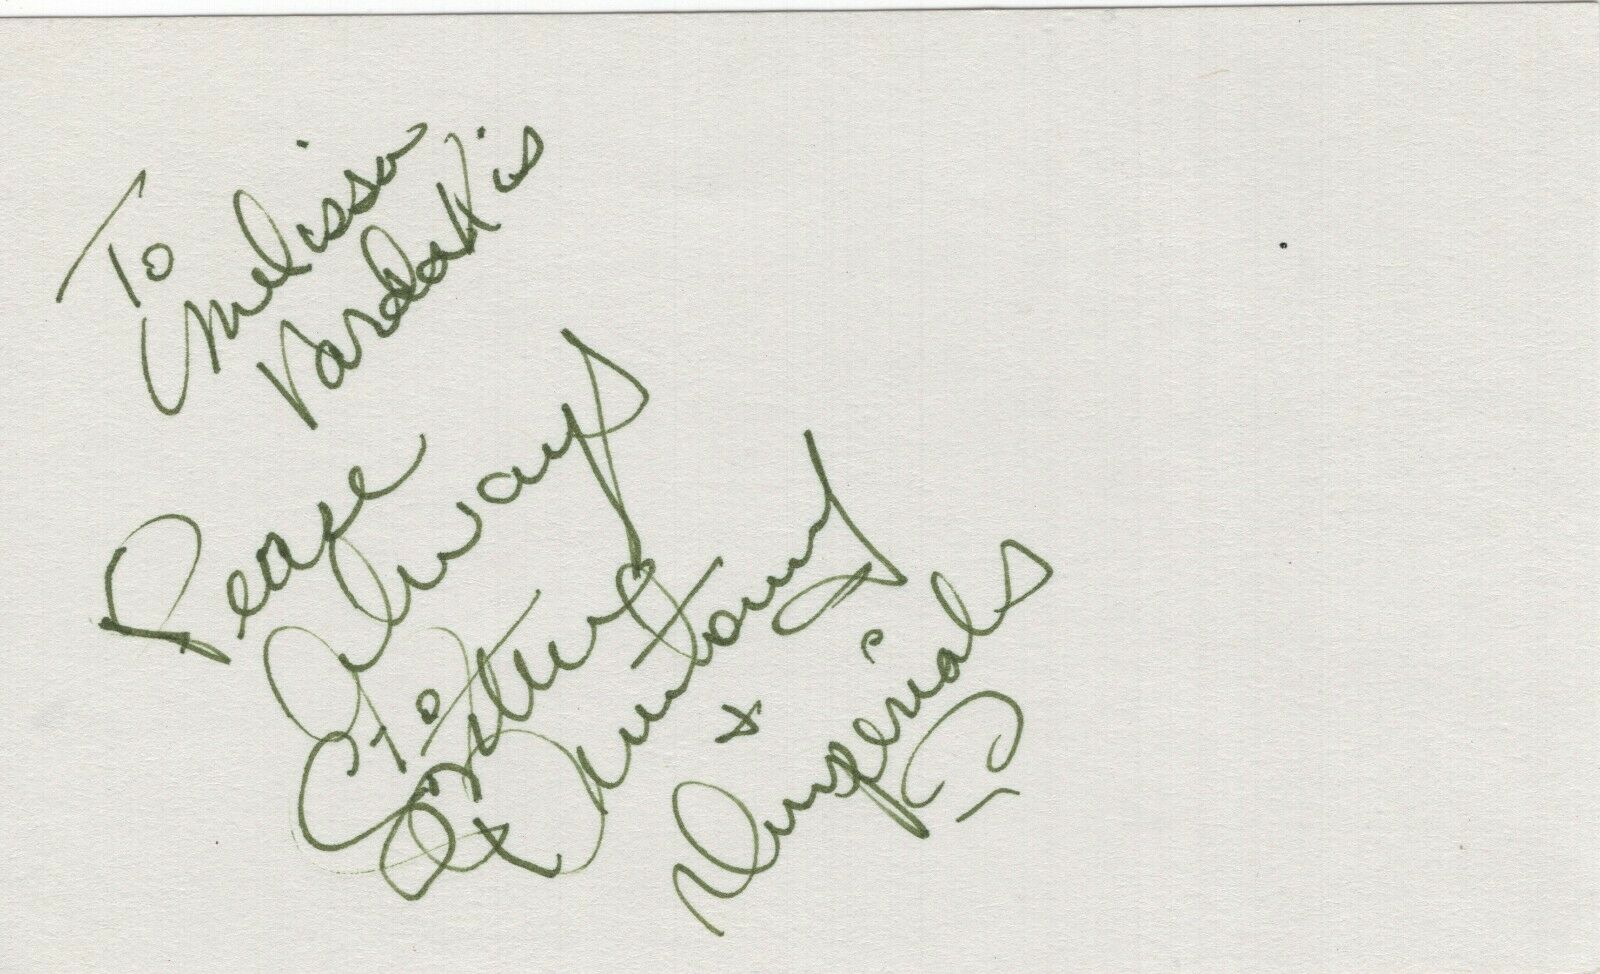 To
Melissa
Vardakis
Peace
Always
Anthony
+
Imperials